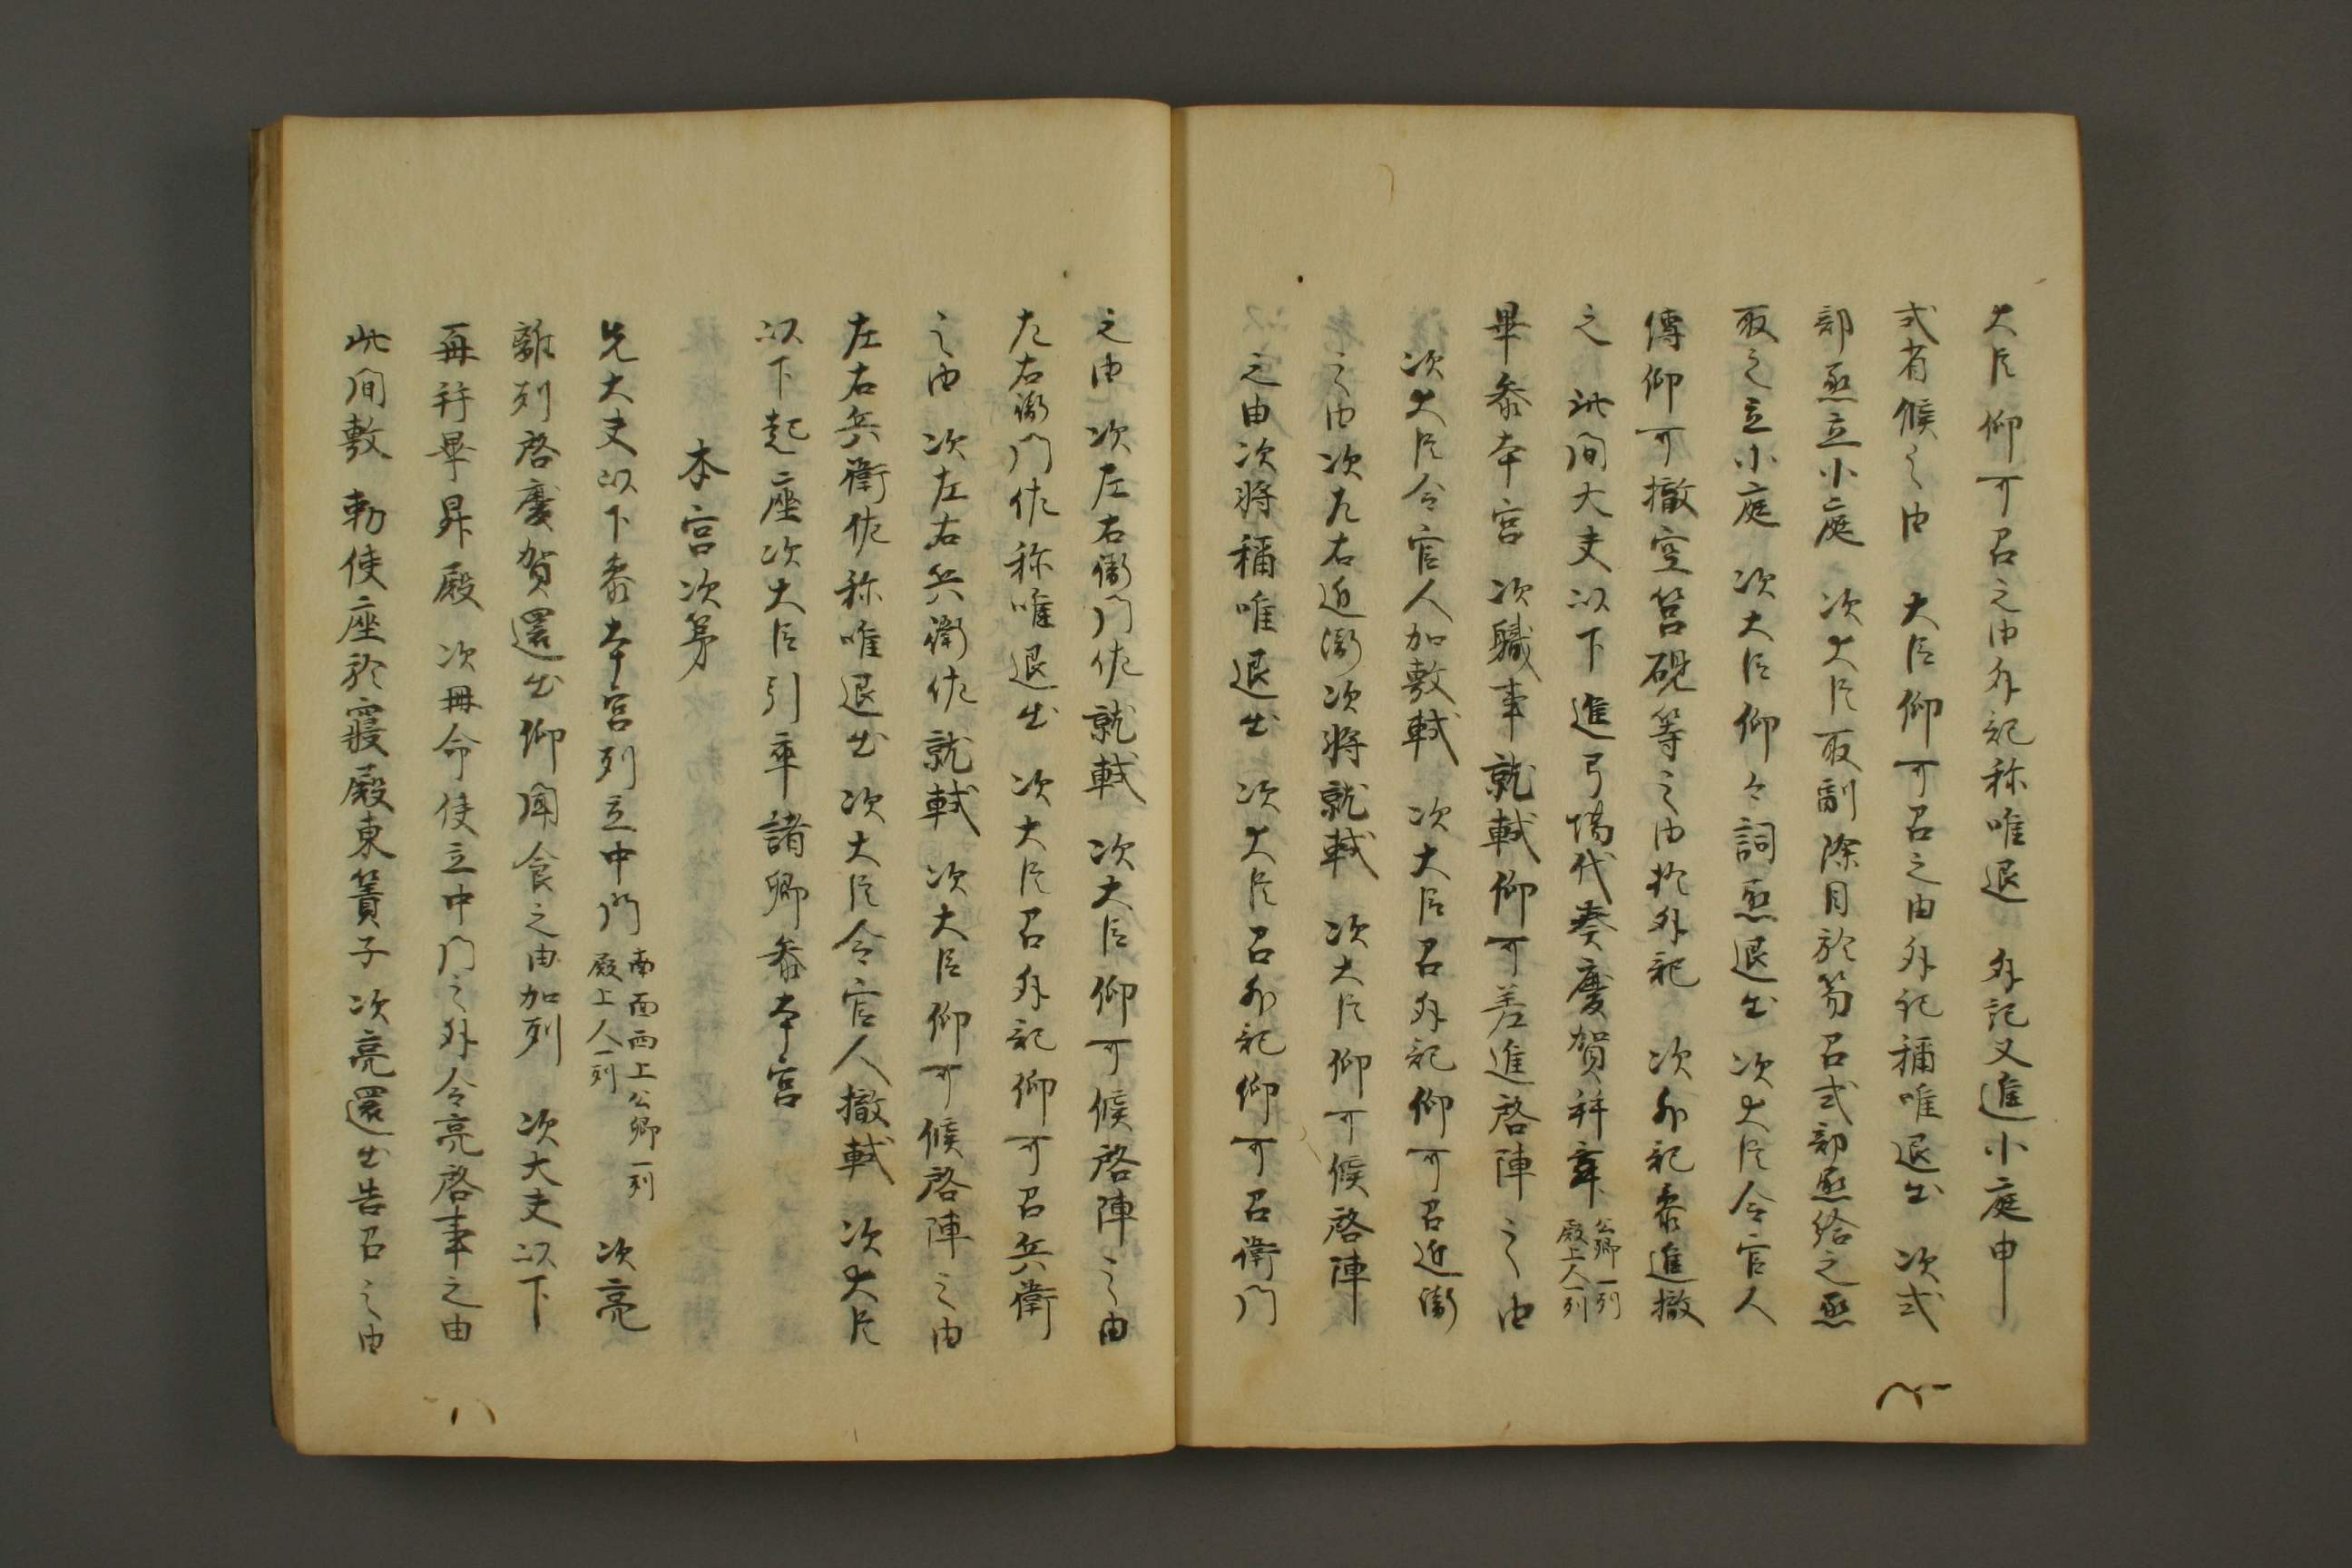 大臣仰可召之由外記称唯退　外記又進小庭申
式省候之由　大臣仰可召之由外記稱唯退出　次式
部丞立小庭　次大臣取副除目於笏召式部丞給之丞
取之立小庭　次大臣仰々詞丞退出　次大臣令官人
傳仰可撤空筥硯等之由於外記　次外記参進撤
之　此間大夫以下進弓場代奏慶賀拜舞 公卿一列 殿上人一列
畢参本宮　次職事就軾仰可差進啓陣之由
次大臣令官人加敷軾　次大臣召外記仰可召近衛
之由次左右近衛次将就軾　次大臣仰可候啓陣
之由次将稱唯退出　次大臣召外記仰可召衛門
之由　次左右衛門佐就軾　次大臣仰可候啓陣之由
左右衛門佐称唯退出　次大臣召外記仰可召兵衛
之由　次左右兵衛佐就軾　次大臣仰可候啓陣之由
左右兵衛佐称唯退出　次大臣令官人撤軾　次大臣
以下起座次大臣引率諸卿参本宮
本宮次第
先大夫以下参本宮列立中門 南面西上公卿一列 殿上人一列　次亮
離列啓慶賀還出仰聞食之由加列　次大夫以下
再拜畢昇殿　次冊命使立中門之外令亮啓事之由
此間敷　勅使座於寝殿東簀子　次亮還出告召之由